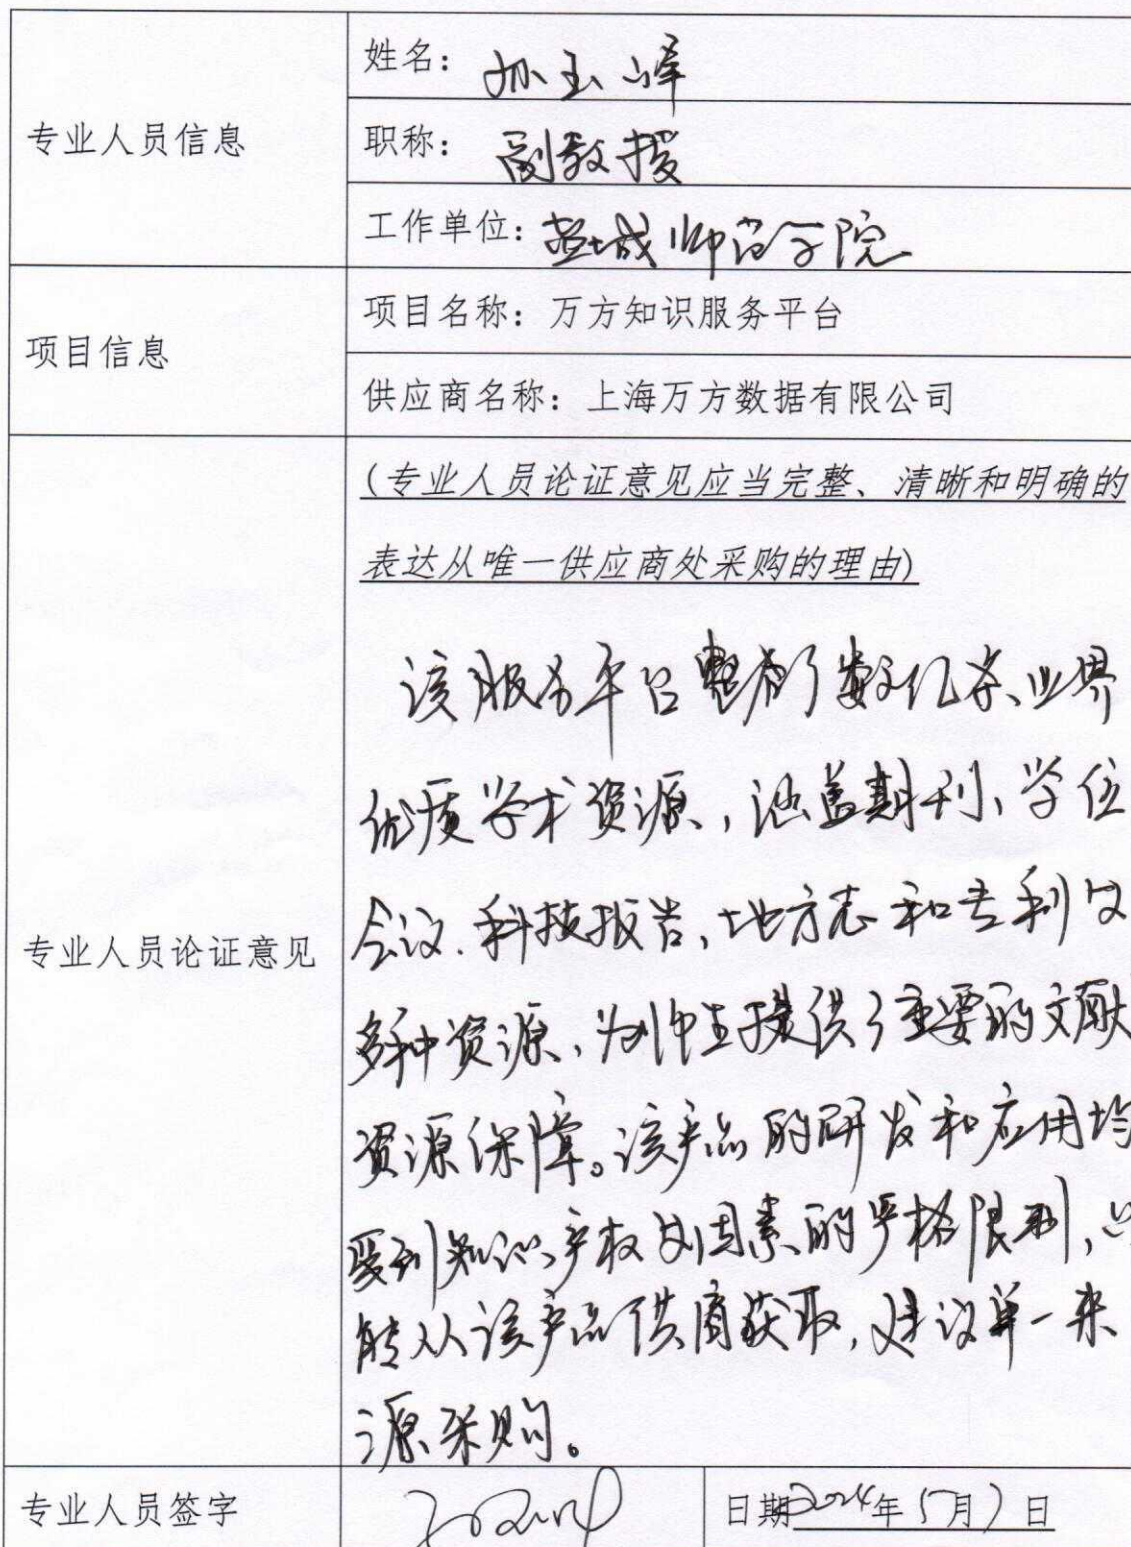 专业人员信息
姓名：孙玉峰
职称：副教授
工作单位：盐城师范学院
项目信息
项目名称：万方知识服务平台
供应商名称：上海万方数据有限公司
专业人员论证意见
(专业人员论证意见应当完整、清晰和明确的
表达从唯一供应商处采购的理由)
该服务平台整合了数亿条业界
优质学术资源，涵盖期刊、学位
会议、科技报告、地方志和专利
多种资源，为师生提供了重要的文献
资源保障。该产品的研发和应用均
受到知识产权 因素的严格限制，只
能从该产品供商获取，建议单一来
源采购。
专业人员签字
日期2024年5月7日